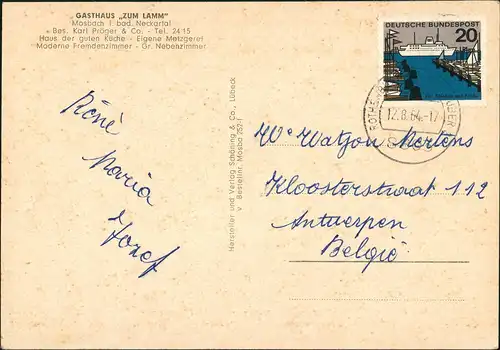 „GASTHAUS „ZUM LAMM”
Mosbach i bad. Neckartal
Bes. Karl Pröger & Co. - Tel. 2415
Haus der guten Küche - Eigene Metzgerei
Moderne Fremdenzimmer - Gr. Nebenzimmer
René
Maria
Jozef
Hersteller und Verlag Schöning & Co., Lübeck
Bestellnr. Mosba 252
DEUTSCHE BUNDESPOST
20
12.8.64.-17
We Watzon Mertens
Kloosterstraat 112
Antwerpen
België